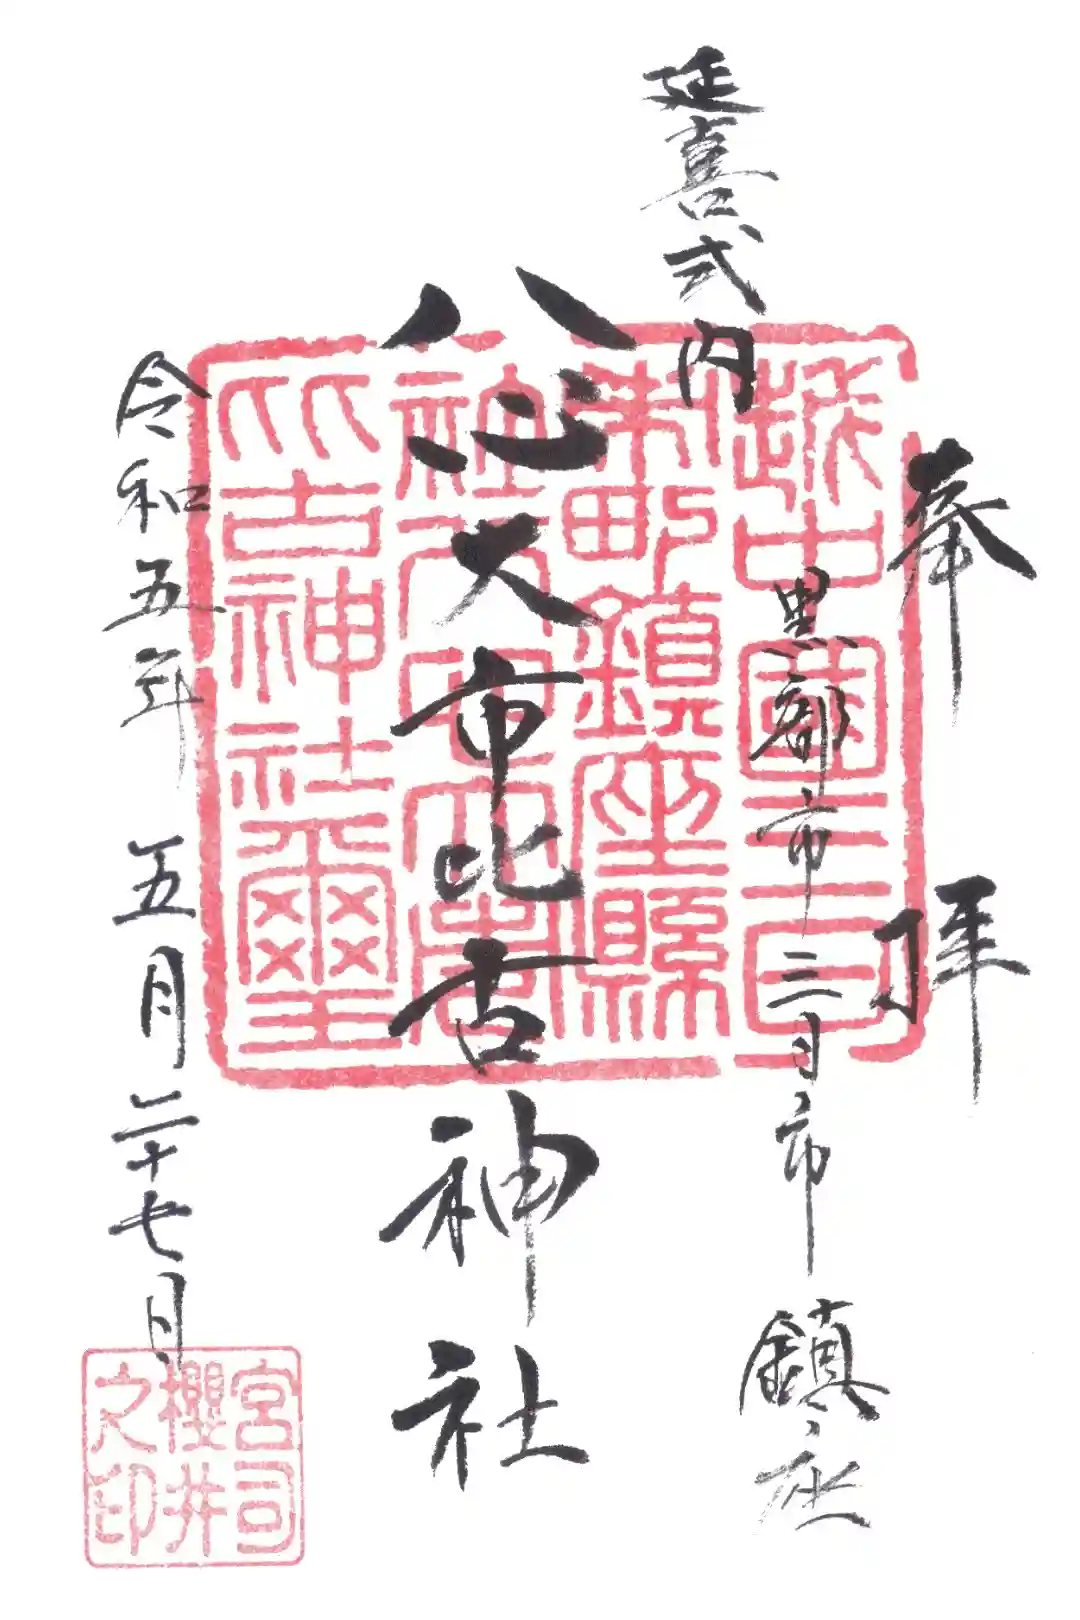 奉拝
延喜式内
黒部市三日市鎮座
八心大市比古神社
令和五年五月二十七日
越中國三日
町鎮座縣
社八
比古神社璽
宮司
櫻井
之印